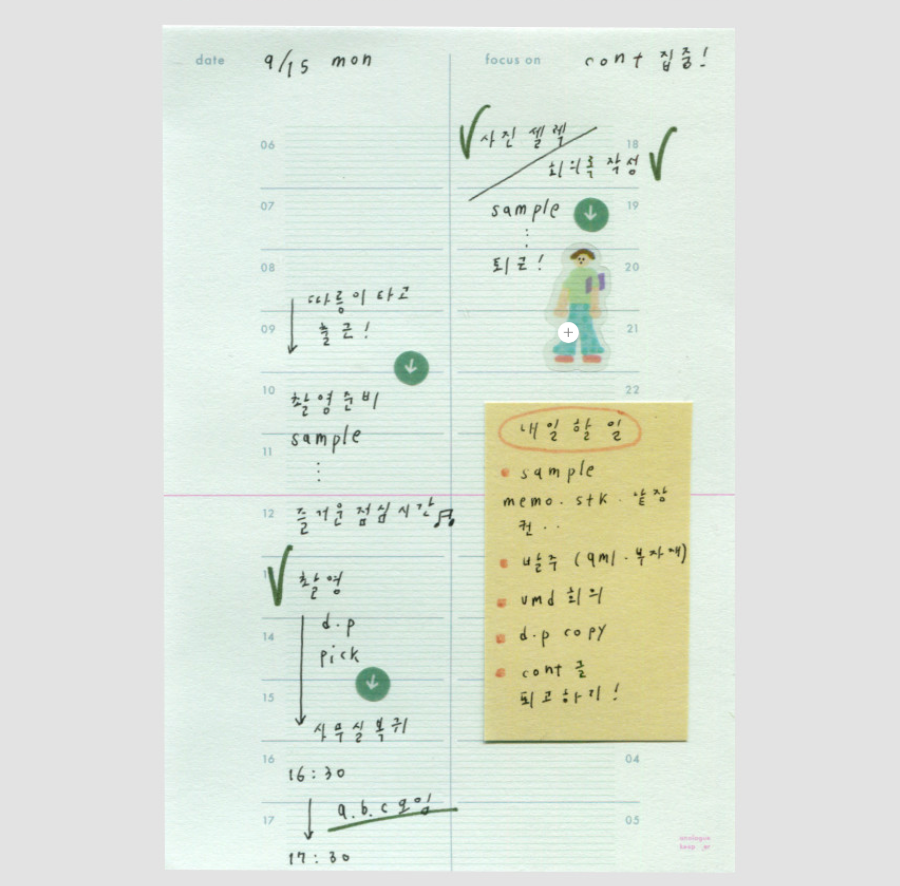 date 9/15 mon
focus on cont 집중!
06
07
08
따릉이 타고
09
출근!
10
촬영준비
sample
11
12
즐거운 점심시간♬
촬영
14
d.p
pick
15
사무실복귀
16
16:30
17
a.b.c 모임
17:30
사진 셀렉
18
회의록 작성
19
sample
20
퇴근!
21
22
내일 할 일
sample
memo. stk. 낱장
컨..
발주 (qml. 부자재)
vmd 회의
d.p copy
cont 글
퇴고하기!
04
05